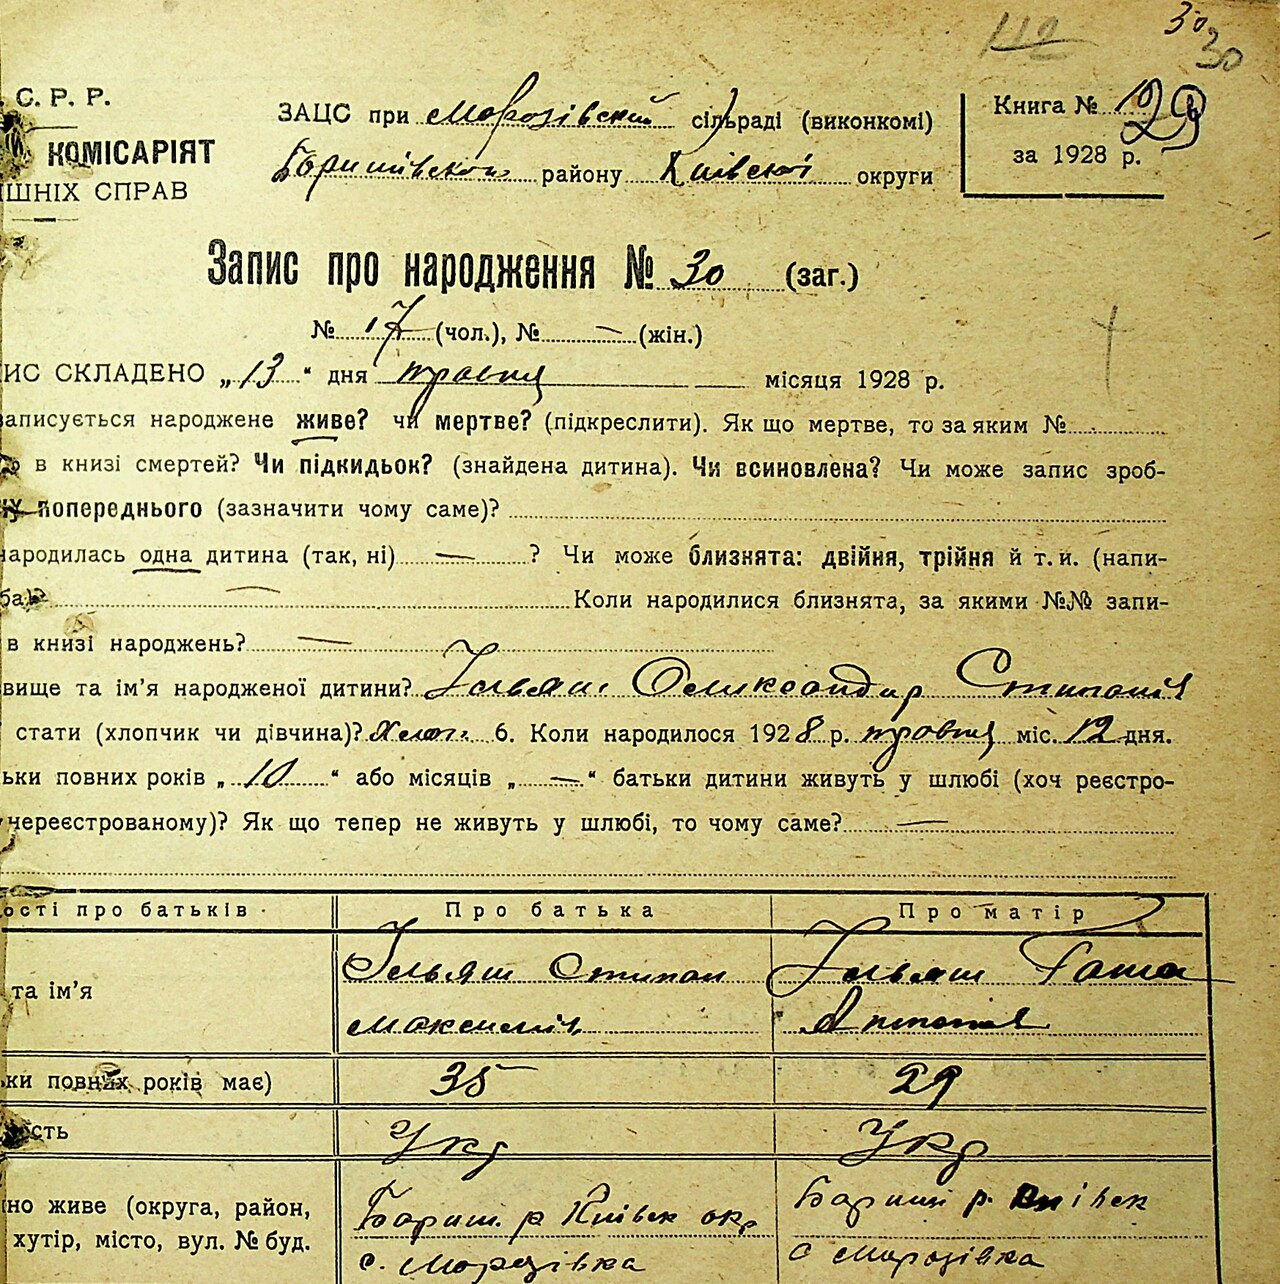 112 30 30
С. Р. Р.
КОМІСАРІЯТ
ШНІХ СПРАВ
ЗАЦС при Морозівский сільраді (виконкомі)
району Київської округи
Книга № 29
за 1928 р.
Запис про народження № 30 (заг.)
№ 17 (чол.), № — (жін.)
ИС СКЛАДЕНО „13“ дня травня місяця 1928 р.
записується народжене живе? чи мертве? (підкреслити). Як що мертве, то за яким №
в книзі смертей? Чи підкидьок? (знайдена дитина). Чи всиновлена? Чи може запис зроб-
попереднього (зазначити чому саме)?
народилась одна дитина (так, ні) — ? Чи може близнята: двійня, трійня й т. и. (напи-
— Коли народилися близнята, за якими №№ запи-
в книзі народжень? —
вище та ім'я народженої дитини? Ільяш Олександир Стипанів
стати (хлопчик чи дівчина)? Хлоп. 6. Коли народилося 1928 р. травня міс. 12 дня.
ьки повних років „10“ або місяців „—“ батьки дитини живуть у шлюбі (хоч реєстро-
нереєстрованому)? Як що тепер не живуть у шлюбі, то чому саме? —
ості про батьків Про батька Про матір
та ім'я Ільяш Стипан Ільяш Гаша
Максимів Антонів
ки повних років має) 35 29
ість Укр Укр
но живе (округа, район, Бариш. р Київск окр Бариш р. Київск
хутір, місто, вул. № буд. с. Морозівка с Морозівка